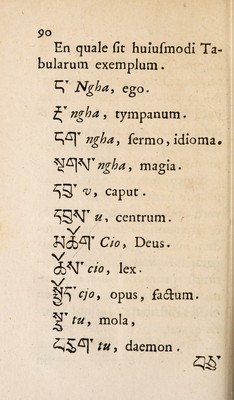 90
En quale sit huiusmodi Ta-
bularum exemplum.
ང་ Ngha, ego.
རྔ་ ngha, tympanum.
ངག་ ngha, sermo, idioma.
སྔགས་ ngha, magia.
དབུ་ v, caput.
དབུས་ u, centrum.
མཆོག་ Cio, Deus.
ཆོས་ cio, lex.
སྤྱོད་ cjo, opus, factum.
tu, mola,
tu, daemon.